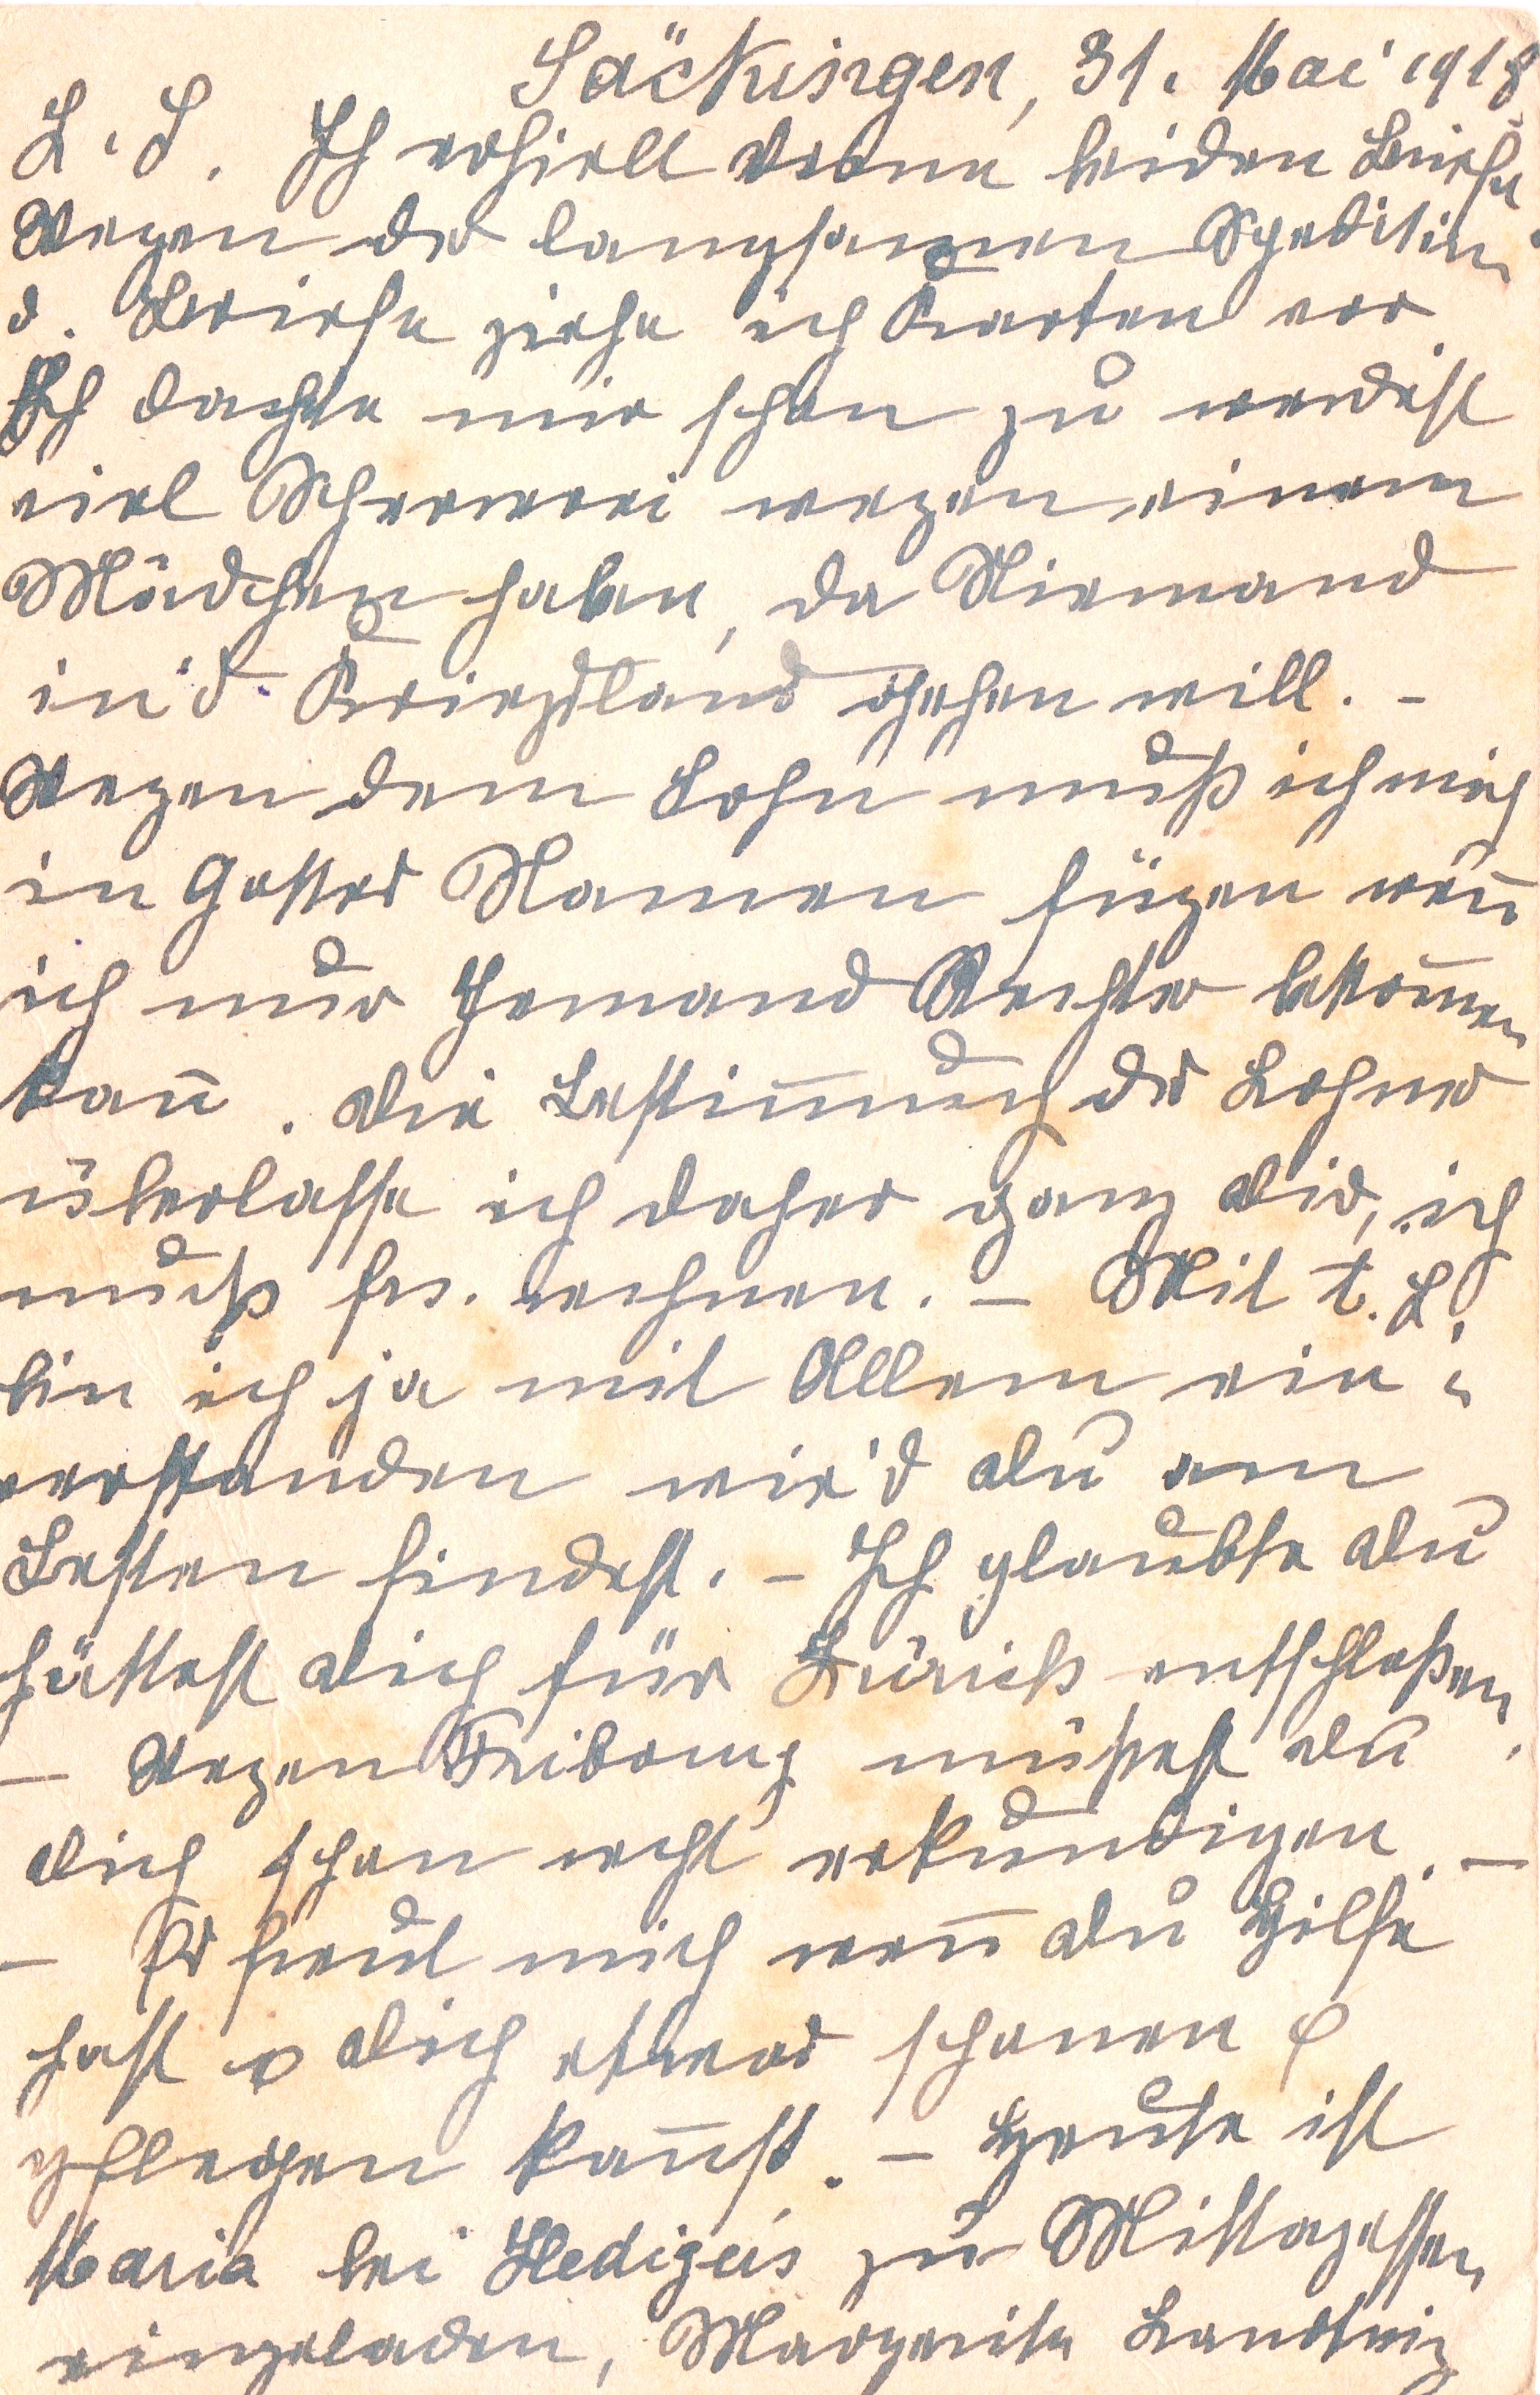 Säckingen, 31. Mai 1918
L. S. Ich erhielt deine beiden Briefe
Wegen der langsamen Spedition
d. Briefe ziehe ich Karten vor.
Ich dachte mir schon du werdest
viel Schererei wegen einem
Mädchen haben, da Niemand
in's Kriegsland gehen will. -
Wegen dem Lohn muß ich mich
in Gottes Namen fügen weñ
ich nur Jemand Rechtes bekom̄en
kañ. Die Bestim̄ung des Lohnes
überlasse ich daher ganz dir, ich
muß frs. rechnen. - Mit t. L.
bin ich ja mit Allem ein
verstanden wie's du am
Besten findest. - Ich glaubte du
hättest dich für Zürich entschloßen
- Wegen Fribourg müßtest du
dich schon recht erkundigen. -
- Es freut mich weñ du Hilfe
hast & dich etwas schonen &
pflegen kañst. - Heute ist
Maria bei Hediger's zu Mittagessen
eingeladen, Margerite